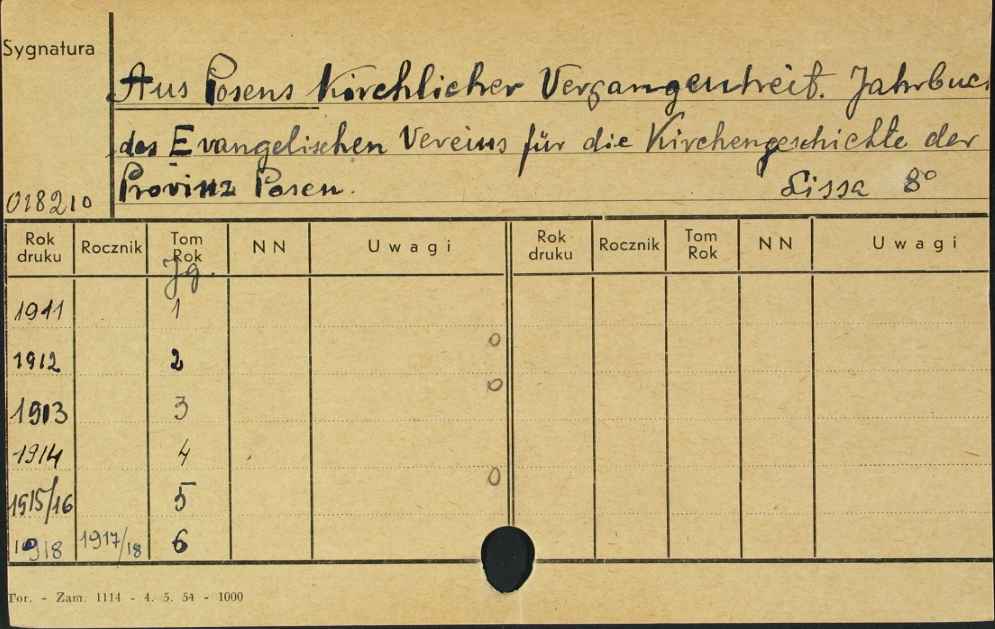 Sygnatura
Aus Posens Kirchlicher Vergangenheit. Jahrbuch
des Evangelischen Vereins für die Kirchengeschichte der
Provinz Posen. Lissa 8°
018210
Rok druku Rocznik Tom Rok NN Uwagi Rok druku Rocznik Tom Rok NN Uwagi
Jg.
1911 1
1912 2
1913 3
1914 4
1915/16 5
1918 1917/18 6
Tor. - Zam. 1114 - 4. 5. 54 - 1000